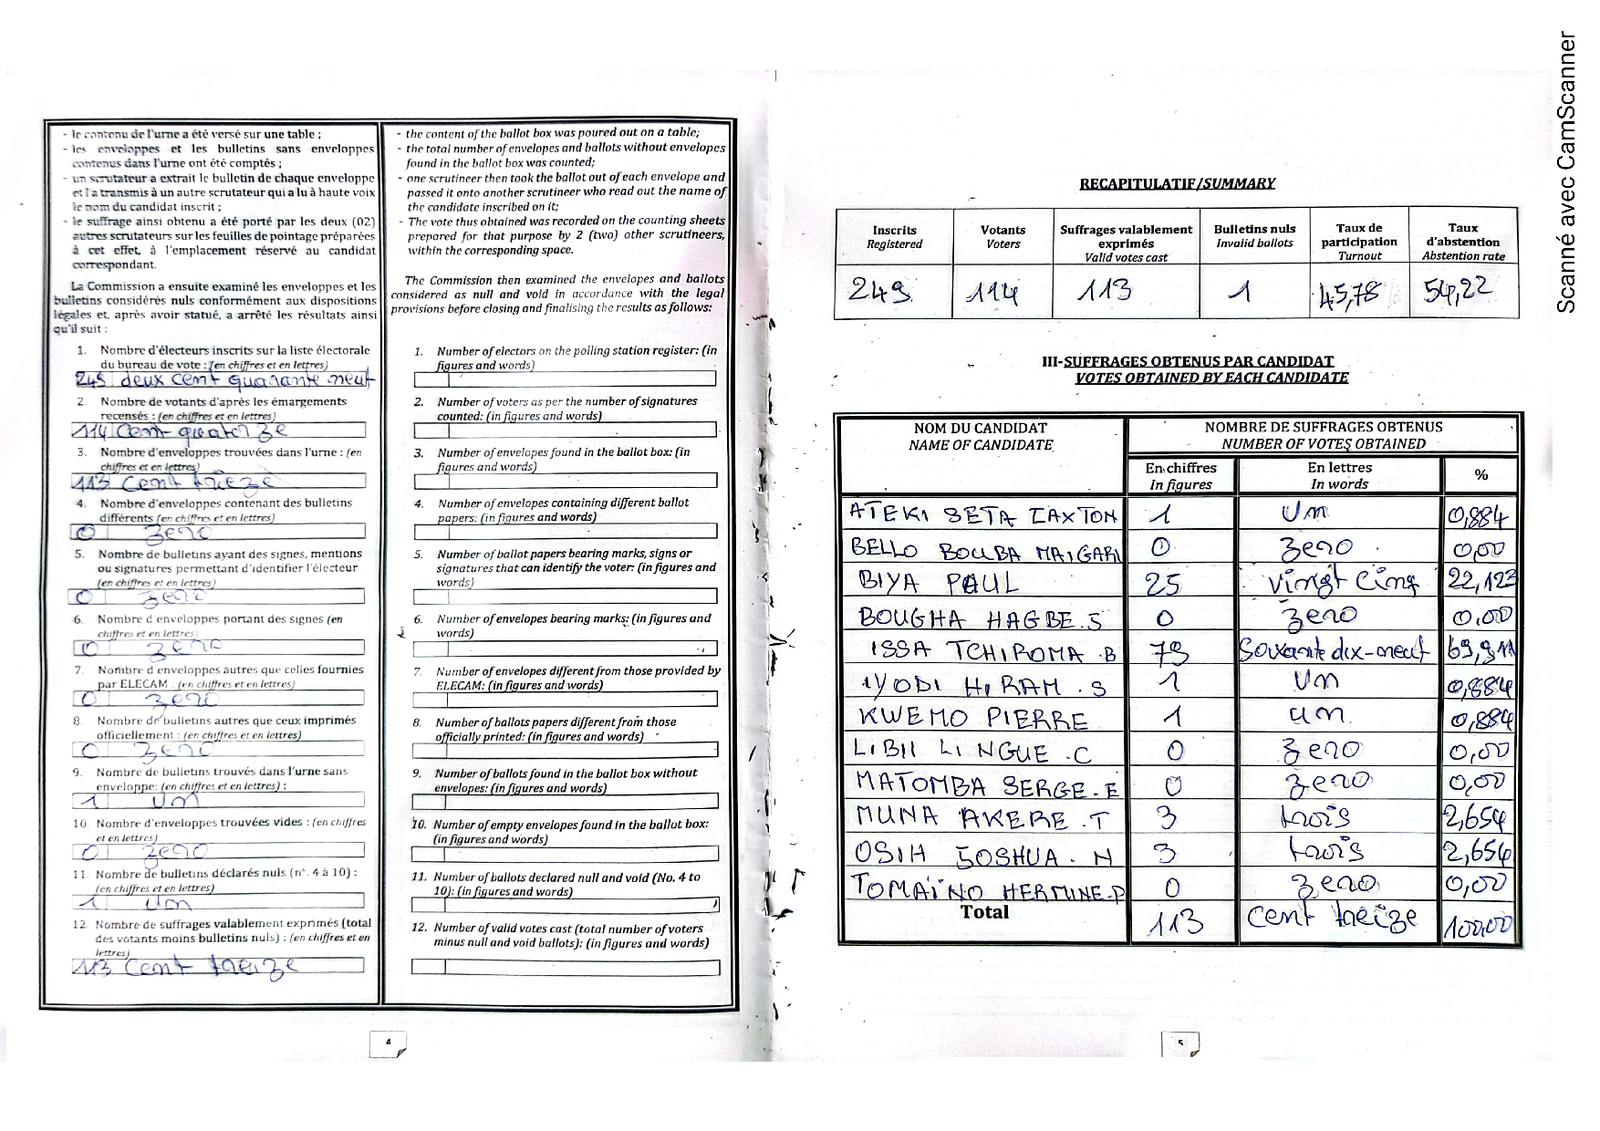 - le contenu de l'urne a été versé sur une table ;
- les enveloppes et les bulletins sans enveloppes
contenus dans l'urne ont été comptés ;
- un scrutateur a extrait le bulletin de chaque enveloppe
et l'a transmis à un autre scrutateur qui a lu à haute voix
le nom du candidat inscrit ;
- le suffrage ainsi obtenu a été porté par les deux (02)
autres scrutateurs sur les feuilles de pointage préparées
à cet effet, à l'emplacement réservé au candidat
correspondant.
La Commission a ensuite examiné les enveloppes et les
bulletins considérés nuls conformément aux dispositions
légales et, après avoir statué, a arrêté les résultats ainsi
qu'il suit :
1. Nombre d'électeurs inscrits sur la liste électorale
du bureau de vote : (en chiffres et en lettres)
249 deux cent quarante neuf
2. Nombre de votants d'après les émargements
recensés : (en chiffres et en lettres)
114 cent quatorze
3. Nombre d'enveloppes trouvées dans l'urne : (en
chiffres et en lettres)
113 cent treize
4. Nombre d'enveloppes contenant des bulletins
différents (en chiffres et en lettres)
0 zero
5. Nombre de bulletins ayant des signes, mentions
ou signatures permettant d'identifier l'électeur
(en chiffres et en lettres)
0 zero
6. Nombre d'enveloppes portant des signes (en
chiffres et en lettres)
0 zero
7. Nombre d'enveloppes autres que celles fournies
par ELECAM (en chiffres et en lettres)
0 zero
8. Nombre de bulletins autres que ceux imprimés
officiellement : (en chiffres et en lettres)
0 zero
9. Nombre de bulletins trouvés dans l'urne sans
enveloppe: (en chiffres et en lettres) :
1 un
10. Nombre d'enveloppes trouvées vides : (en chiffres
et en lettres)
0 zero
11. Nombre de bulletins déclarés nuls (n°. 4 à 10) :
(en chiffres et en lettres)
1 un
12. Nombre de suffrages valablement exprimés (total
des votants moins bulletins nuls) : (en chiffres et en
lettres)
113 cent treize
4
- the content of the ballot box was poured out on a table;
- the total number of envelopes and ballots without envelopes
found in the ballot box was counted;
- one scrutineer then took the ballot out of each envelope and
passed it onto another scrutineer who read out the name of
the candidate inscribed on it;
- The vote thus obtained was recorded on the counting sheets
prepared for that purpose by 2 (two) other scrutineers,
within the corresponding space.
The Commission then examined the envelopes and ballots
considered as null and void in accordance with the legal
provisions before closing and finalising the results as follows:
1. Number of electors on the polling station register: (in
figures and words)
2. Number of voters as per the number of signatures
counted: (in figures and words)
3. Number of envelopes found in the ballot box: (in
figures and words)
4. Number of envelopes containing different ballot
papers: (in figures and words)
5. Number of ballot papers bearing marks, signs or
signatures that can identify the voter: (in figures and
words)
6. Number of envelopes bearing marks: (in figures and
words)
7. Number of envelopes different from those provided by
ELECAM: (in figures and words)
8. Number of ballots papers different from those
officially printed: (in figures and words)
9. Number of ballots found in the ballot box without
envelopes: (in figures and words)
10. Number of empty envelopes found in the ballot box:
(in figures and words)
11. Number of ballots declared null and void (No. 4 to
10): (in figures and words)
12. Number of valid votes cast (total number of voters
minus null and void ballots): (in figures and words)
RECAPITULATIF/SUMMARY
Inscrits Registered | Votants Voters | Suffrages valablement exprimés Valid votes cast | Bulletins nuls Invalid ballots | Taux de participation Turnout | Taux d'abstention Abstention rate
249 114 113 1 45,78 54,22
III-SUFFRAGES OBTENUS PAR CANDIDAT
VOTES OBTAINED BY EACH CANDIDATE
NOM DU CANDIDAT NOMBRE DE SUFFRAGES OBTENUS
NAME OF CANDIDATE NUMBER OF VOTES OBTAINED
En chiffres En lettres %
In figures In words
ATEKI SETA CAXTON 1 un 0,884
BELLO BOUBA MAIGARI 0 zero 0,00
BIYA PAUL 25 vingt cinq 22,123
BOUGHA HAGBE.S 0 zero 0,00
ISSA TCHIROMA .B 79 Soixante dix-neuf 69,911
IYODI HIRAM .S 1 un 0,884
KWEMO PIERRE 1 un 0,884
LIBII LI NGUE .C 0 zero 0,00
MATOMBA SERGE.E 0 zero 0,00
MUNA AKERE .T 3 trois 2,654
OSIH JOSHUA. N 3 trois 2,654
TOMAÏNO HERMINE.P 0 zero 0,00
Total 113 cent treize 100,00
5
Scanné avec CamScanner